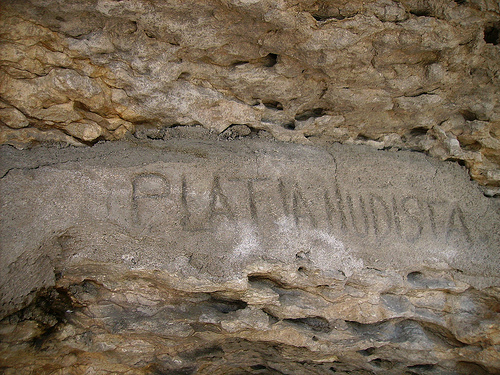 PLATJA NUDISTA